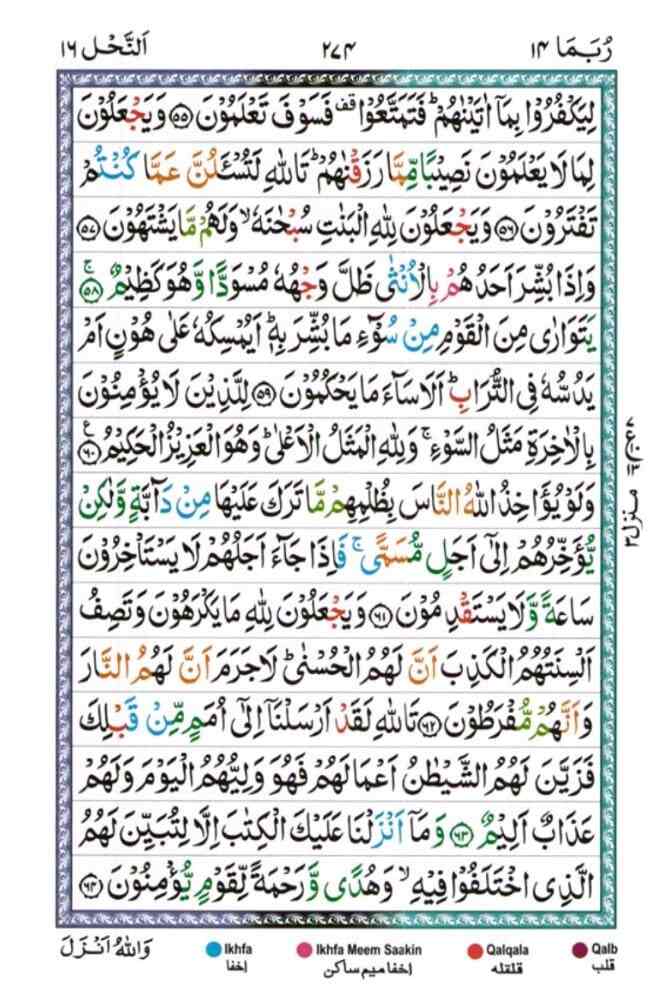 رُبَمَا ١٤ ٢٧٤ اَلنَّحْل ١٦
لِيَكْفُرُوْا بِمَاۤ اٰتَيْنٰهُمْ ؕ فَتَمَتَّعُوْا قف فَسَوْفَ تَعْلَمُوْنَ ۝٥٥ وَيَجْعَلُوْنَ
لِمَا لَا يَعْلَمُوْنَ نَصِيْبًا مِّمَّا رَزَقْنٰهُمْ ؕ تَاللّٰهِ لَتُسْـَٔلُنَّ عَمَّا كُنْتُمْ
تَفْتَرُوْنَ ۝٥٦ وَيَجْعَلُوْنَ لِلّٰهِ الْبَنٰتِ سُبْحٰنَهٗ ۙ وَلَهُمْ مَّا يَشْتَهُوْنَ ۝٥٧
وَاِذَا بُشِّرَ اَحَدُهُمْ بِالْاُنْثٰى ظَلَّ وَجْهُهٗ مُسْوَدًّا وَّهُوَ كَظِيْمٌ ۚ ۝٥٨
يَتَوَارٰى مِنَ الْقَوْمِ مِنْ سُوْٓءِ مَا بُشِّرَ بِهٖ ؕ اَيُمْسِكُهٗ عَلٰى هُوْنٍ اَمْ
يَدُسُّهٗ فِى التُّرَابِ ؕ اَلَا سَآءَ مَا يَحْكُمُوْنَ ۝٥٩ لِلَّذِيْنَ لَا يُؤْمِنُوْنَ
بِالْاٰخِرَةِ مَثَلُ السَّوْءِ ۚ وَلِلّٰهِ الْمَثَلُ الْاَعْلٰى ؕ وَهُوَ الْعَزِيْزُ الْحَكِيْمُ ۝٦٠ ع
وَلَوْ يُؤَاخِذُ اللّٰهُ النَّاسَ بِظُلْمِهِمْ مَّا تَرَكَ عَلَيْهَا مِنْ دَآبَّةٍ وَّلٰكِنْ
يُّؤَخِّرُهُمْ اِلٰٓى اَجَلٍ مُّسَمًّى ۚ فَاِذَا جَآءَ اَجَلُهُمْ لَا يَسْتَاْخِرُوْنَ
سَاعَةً وَّلَا يَسْتَقْدِمُوْنَ ۝٦١ وَيَجْعَلُوْنَ لِلّٰهِ مَا يَكْرَهُوْنَ وَتَصِفُ
اَلْسِنَتُهُمُ الْكَذِبَ اَنَّ لَهُمُ الْحُسْنٰى ؕ لَا جَرَمَ اَنَّ لَهُمُ النَّارَ
وَاَنَّهُمْ مُّفْرَطُوْنَ ۝٦٢ تَاللّٰهِ لَقَدْ اَرْسَلْنَاۤ اِلٰٓى اُمَمٍ مِّنْ قَبْلِكَ
فَزَيَّنَ لَهُمُ الشَّيْطٰنُ اَعْمَالَهُمْ فَهُوَ وَلِيُّهُمُ الْيَوْمَ وَلَهُمْ
عَذَابٌ اَلِيْمٌ ۝٦٣ وَمَاۤ اَنْزَلْنَا عَلَيْكَ الْكِتٰبَ اِلَّا لِتُبَيِّنَ لَهُمُ
الَّذِى اخْتَلَفُوْا فِيْهِ ۙ وَهُدًى وَّرَحْمَةً لِّقَوْمٍ يُّؤْمِنُوْنَ ۝٦٤
منزل٣
وَاللّٰهُ اَنْزَلَ Ikhfa Ikhfa Meem Saakin Qalqala Qalb
اخفا اخفا میم ساکن قلقله قلب